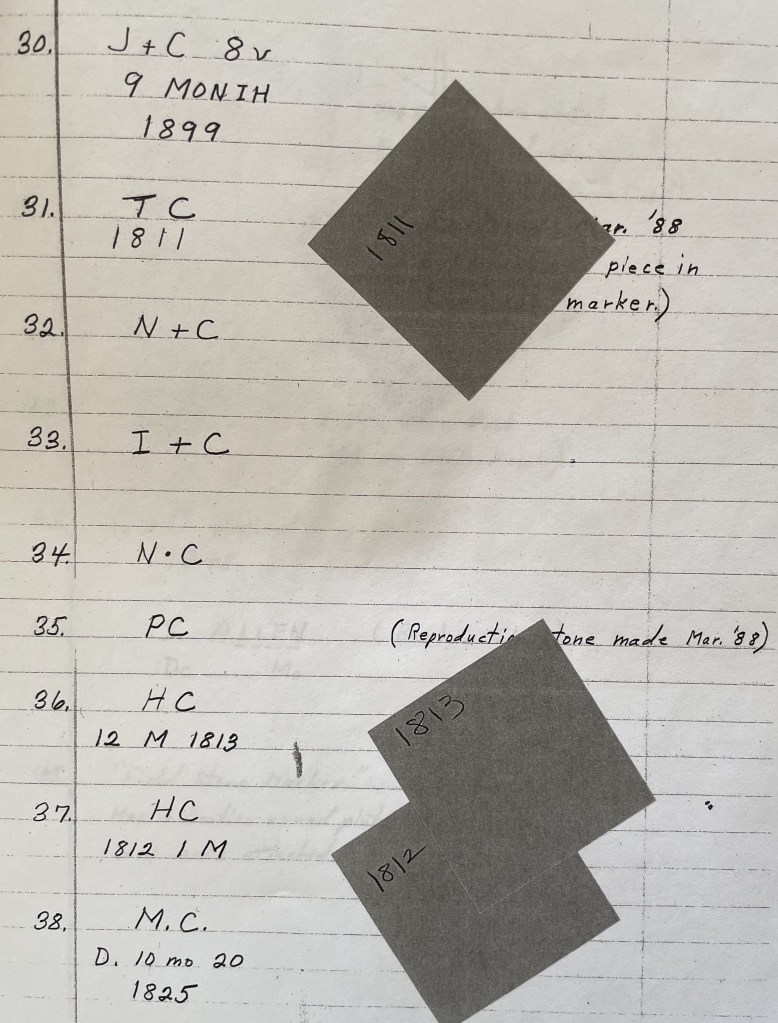 30. J + C 8v
9 MONIH
1899
31. T C
1811
1811
'88
piece in
marker.)
32. N + C
33. I + C
34. N · C
35. PC ( made Mar. '88)
36. H C
12 M 1813
1813
37. HC
1812 1 M
1812
38. M. C.
D. 10 mo 20
1825